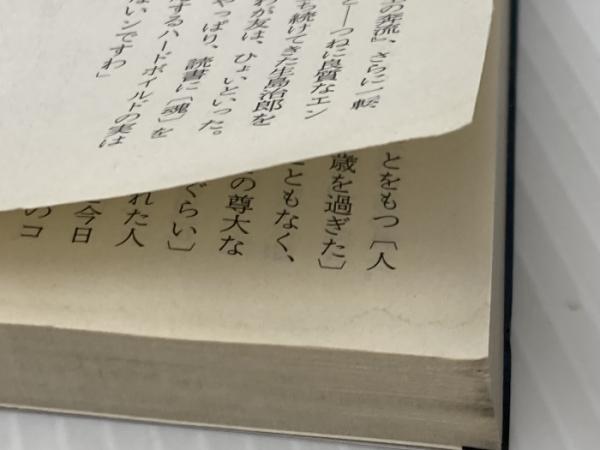 の奔流』、さらに一転
―つねに良質なエン
ち続けてきた生島治郎を
わが友は、ひょいといった。
やっぱり、読書に〔魂〕を
するハードボイルドの実は
ないンですわ」
とをもつ〔人
歳を過ぎた〕
ともなく、
の尊大な
ぐらい〕
れた人
今日
のコ